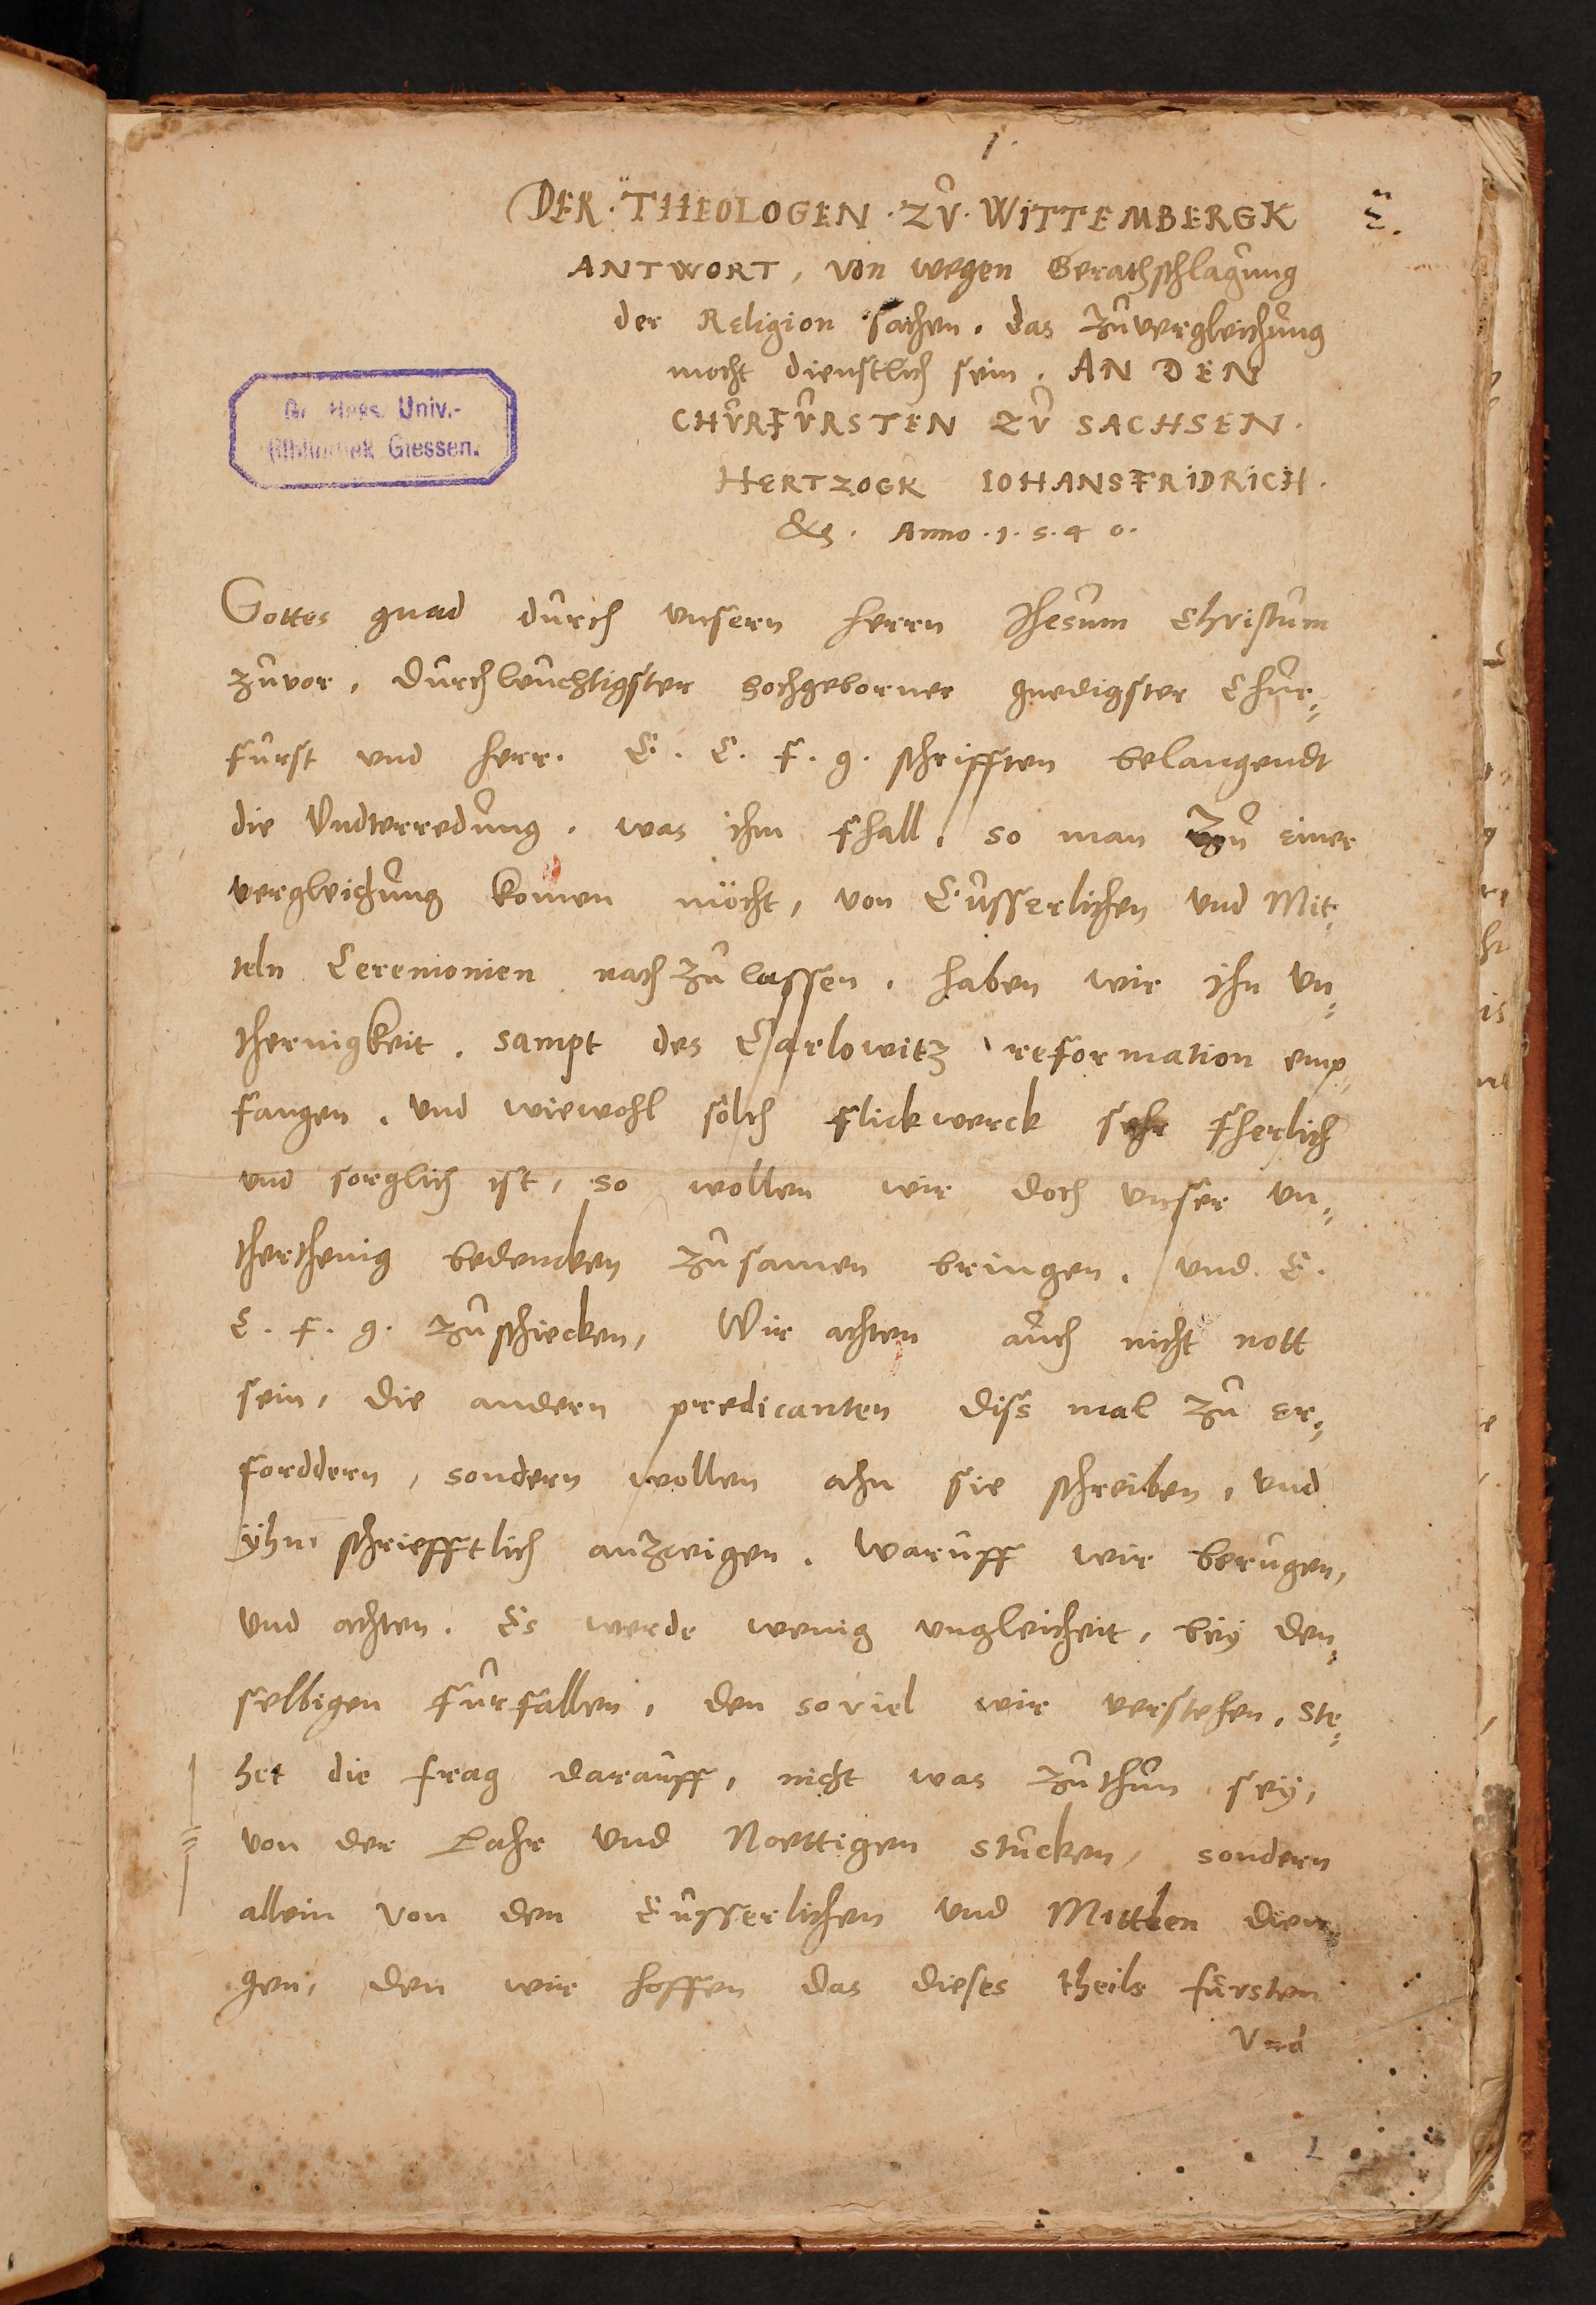 1.
DER · THEOLOGEN · ZŬ · WITTEMBERGK
ANTWORT, von wegen Berathschlagŭng
der Religion sachen. das zŭvergleichŭng
mocht dienstlich sein. AN DEN
CHŬRFŬRSTEN ZŬ SACHSEN.
Gr. Hess. Univ.-
Bibliothek Giessen.
HERTZOGK IOHANSFRIDRICH.
&c. Anno · 1 · 5 · 4 0 ·
Gottes gnad dŭrch vnsern herrn Jhesŭm Christŭm
zŭvor, dŭrchleŭchtigster hochgeborner gnedigster Chŭr⸗
fŭrst vnd herr. E. C. F. g. schrifften belangendt
die Vndterredŭng. was ihm fhall, so man zŭ einer
vergleichŭng komen möcht, von Eŭsserlichen vnd Mit⸗
teln Ceremonien nach zŭ lassen. haben wir ihn vn⸗
thernigkeit. sampt des Carlowitz reformation emp⸗
fangen. vnd wiewohl sölch flickwerck sehr fherlich
vnd sorglich ist, so wollen wir doch vnser vn⸗
therthenig bedencken zŭsamen bringen. vnd E.
C. F. g. zŭschicken, Wir achten aŭch nicht nott
sein, die andern predicanten diss mal zŭ er⸗
forddern, sondern wollen ahn sie schreiben, vnd
ÿhn schriefftlich anzeigen. warŭff wir berŭgen,
vnd achten. Es werde wenig vngleicheit, beÿ den⸗
selbigen fŭrfallen, den soviel wir verstehen, ste⸗
het die frag daraŭff, nicht was zŭthŭn seÿ,
von der Lahr vnd Noettigen stŭcken, sondern
allein von den Eŭsserlichen vnd Mittlen dien⸗
gen, den wir hoffen das dieses theils fŭrsten
Vnd